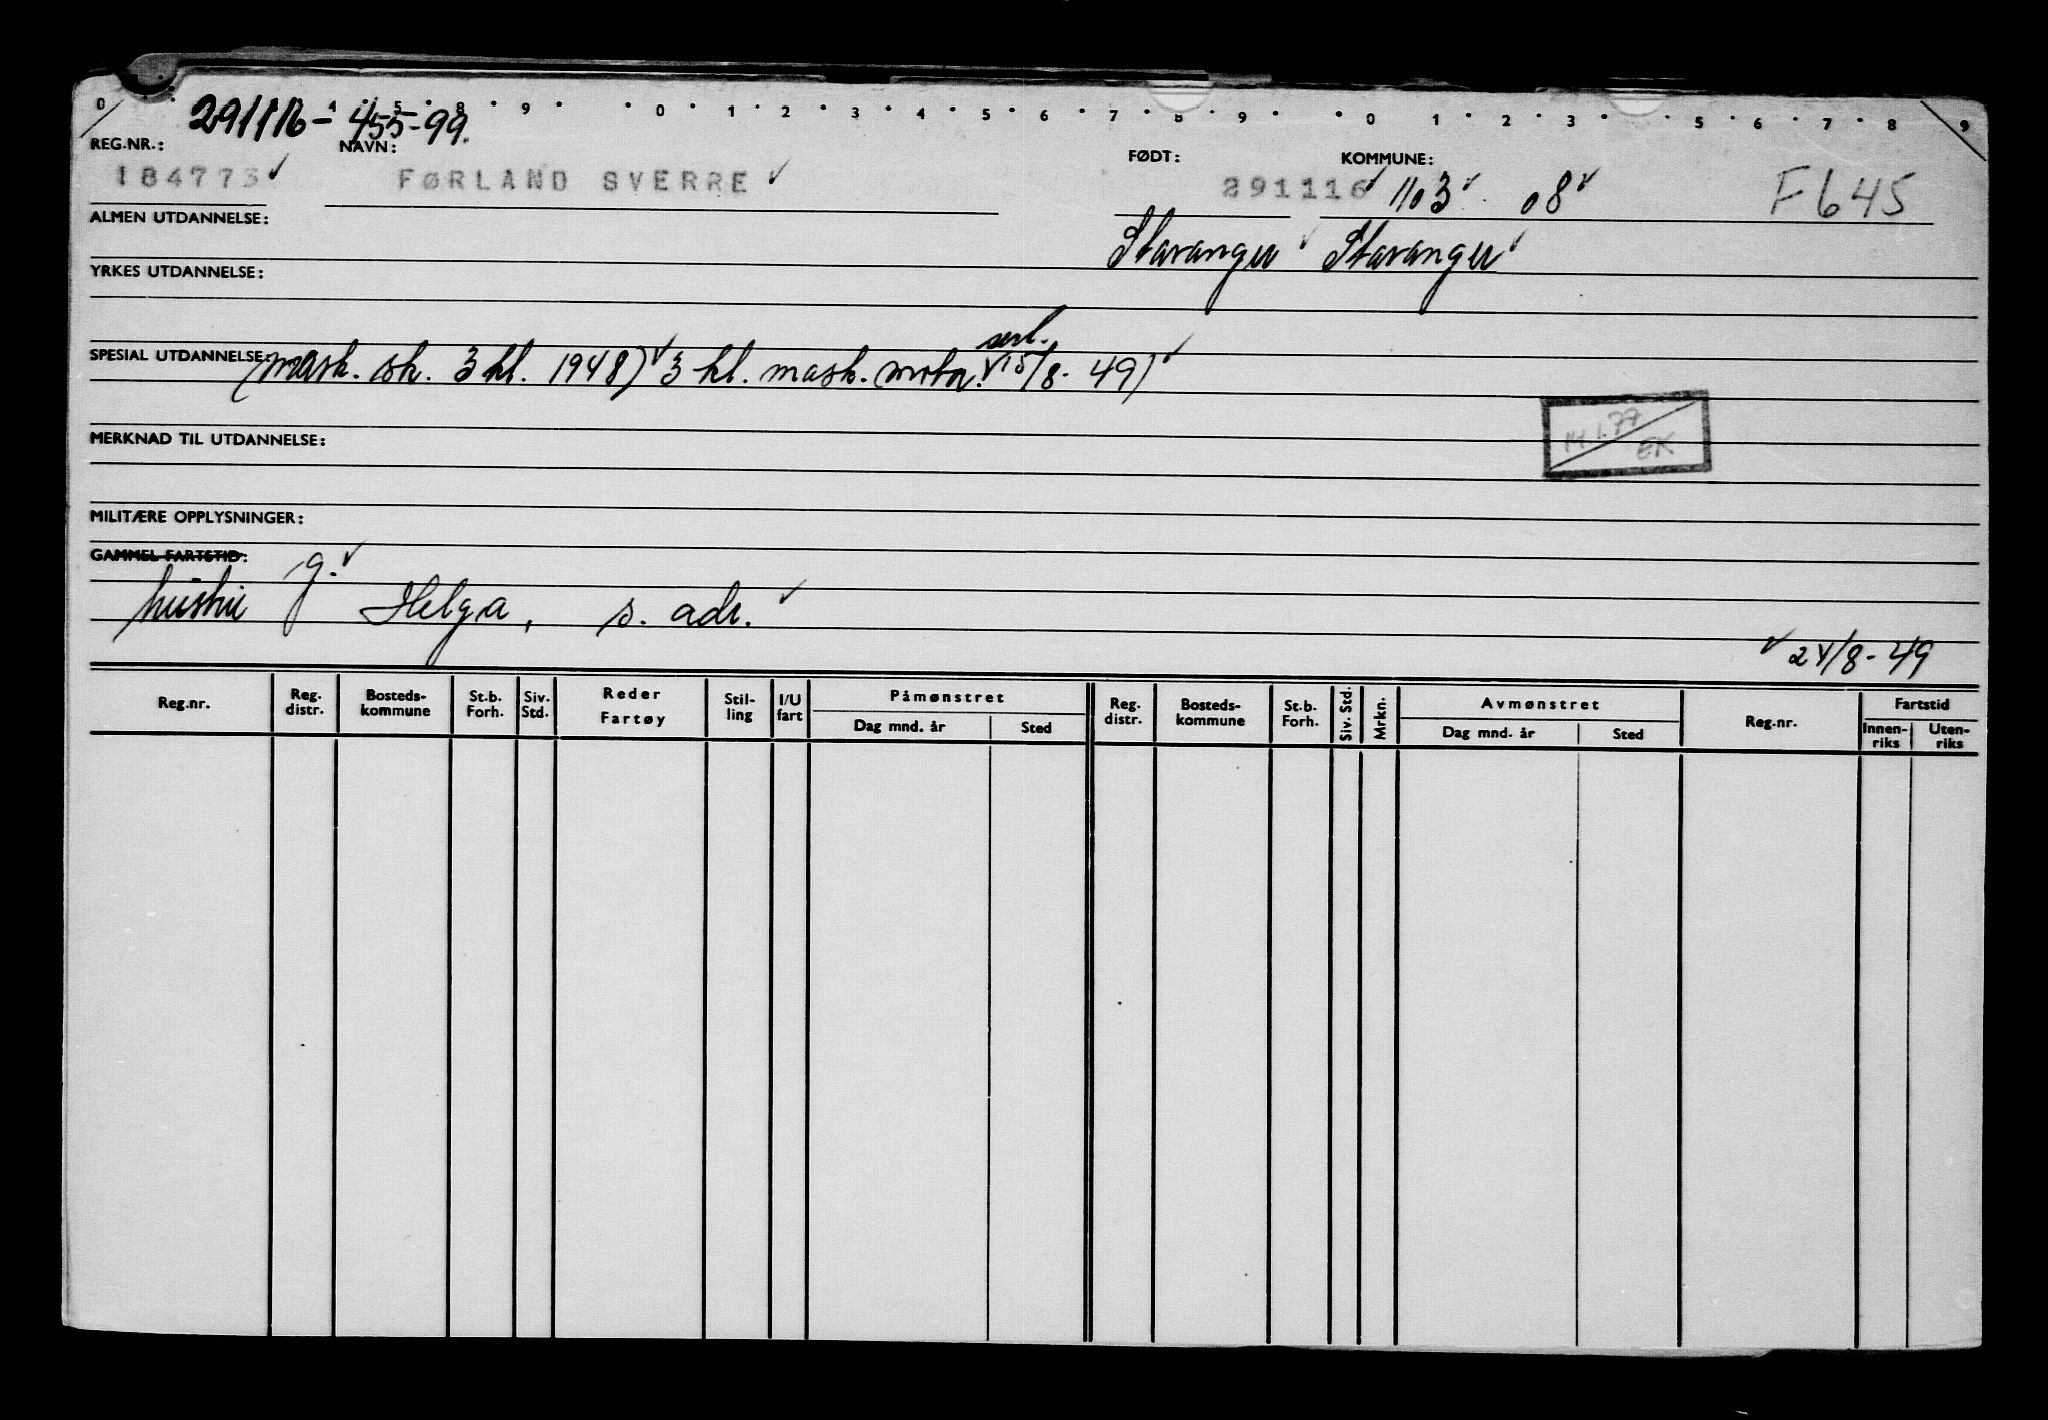 0 4 5 8 9 0 1 2 3 4 5 6 7 8 9 0 1 2 3 5 6 7 8 9
291116-455-99.
REG.NR.: NAVN: FØDT: KOMMUNE:
184773 ✓ FØRLAND SVERRE ✓ 291116 ✓ 1103 ✓ 08 ✓ F645
ALMEN UTDANNELSE: Stavanger ✓ Stavanger ✓
YRKES UTDANNELSE:
serl.
SPESIAL UTDANNELSE: (mask. sk. 3 kl. 1948) ✓ 3 kl. mask. motor. 15/8-49) ✓
14.1.77
EK
MERKNAD TIL UTDANNELSE:
MILITÆRE OPPLYSNINGER:
GAMMEL FARTSTID: g. ✓
hustru Helga, s. adr. ✓
✓ 24/8-49
Reg.nr. Reg. distr. Bosteds-kommune St.b. Forh. Siv. Std. Reder Fartøy Stil-ling I/U fart Påmønstret Dag mnd. år Sted Reg. distr. Bosteds-kommune St.b. Forh. Siv. Std. Mrkn. Avmønstret Dag mnd. år Sted Reg.nr. Fartstid Innen-riks Uten-riks